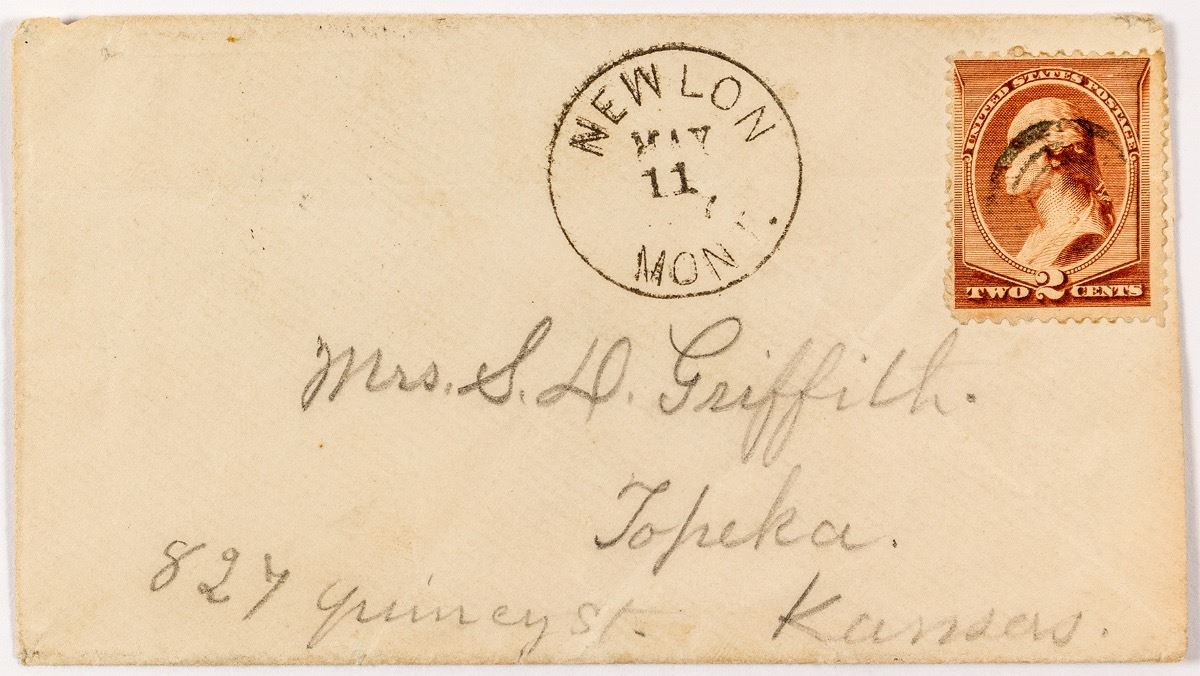 NEWLON
MAY
11
MONT.
UNITED STATES POSTAGE
TWO 2 CENTS
Mrs. S. D. Griffith.
Topeka.
827 Quincy St.
Kansas.